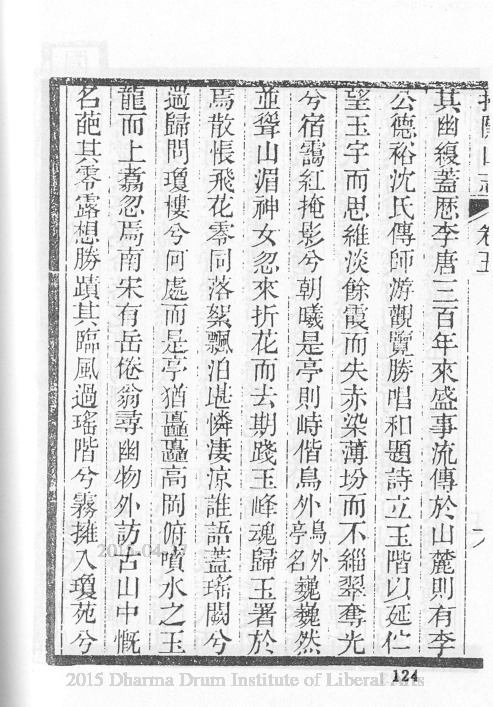 招隱山志 卷五
其幽縵蓋歷李唐三百年來盛事流傳於山麓則有李
公德裕沈氏傳師游觀覽勝唱和題詩立玉階以延伫
望玉宇而思維淡餘霞而失赤染薄坋而不緇翠奪光
兮宿靄紅掩影兮朝曦是亭則峙偕鳥外鳥外亭名巍巍然
並聳山湄神女忽來折花而去期踐玉峰魂歸玉署於
焉散悵飛花零同落絮飄泊堪憐淒涼誰語蓋瑤闕兮
遄歸問瓊樓兮何處而是亭猶矗矗高岡俯噴水之玉
龍而上翥忽焉南宋有岳倦翁尋幽物外訪古山中慨
名葩其零露想勝蹟其臨風過瑤階兮霧擁入瓊苑兮
124
2015 Dharma Drum Institute of Liberal Arts